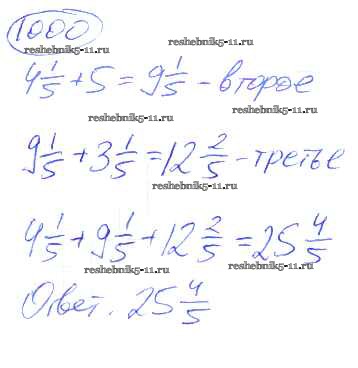 1000
reshebnik5-11.ru
reshebnik5-11.ru
4 1/5 + 5 = 9 1/5 - второе
reshebnik5-11.ru
reshebnik5-11.ru
9 1/5 + 3 1/5 = 12 2/5 - третье
reshebnik5-11.ru
4 1/5 + 9 1/5 + 12 2/5 = 25 4/5
reshebnik5-11.ru
reshebnik5-11.ru
Ответ. 25 4/5